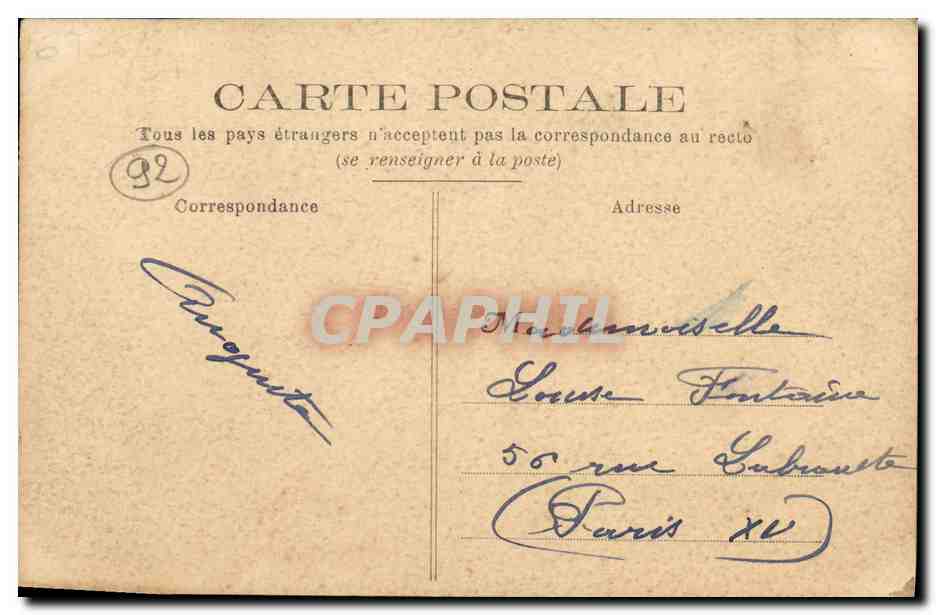 CARTE POSTALE
Tous les pays étrangers n'acceptent pas la correspondance au recto
(se renseigner à la poste)
92
Correspondance
Adresse
Auguste
CPAPHIL
Mademoiselle
Louise Fontaine
56 rue Labrouste
(Paris XV)